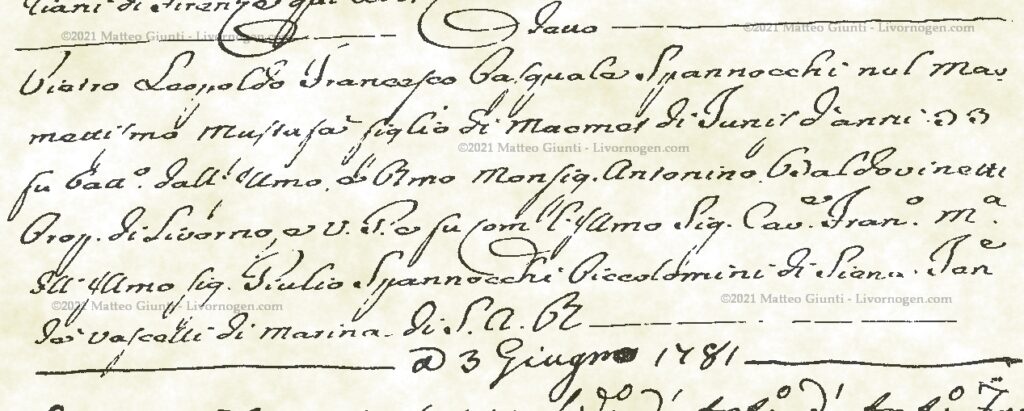 ©2021 Matteo Giunti - Livornogen.com
©2021 Matteo Giunti - Livornogen.com
Pietro Leopoldo Francesco Pasquale Spannocchi nel Mao
mettismo Mustafà figlio di Maomet di Tunis d'anni 33
fu Batt.º dall'Illmo, e Rmo Monsig. Antonino Baldovinetti
Prop. di Livorno, e V. G. e fu Com.e l'Illmo Sig. Cav.e Fran.º M.a
dell'Illmo Sig. Giulio Spannocchi Piccolomini di Siena. Ten.e
de Vascelli di Marina di S. A. R
©2021 Matteo Giunti - Livornogen.com
©2021 Matteo Giunti - Livornogen.com
©2021 Matteo Giunti - Livornogen.com
A 3 Giugno 1781